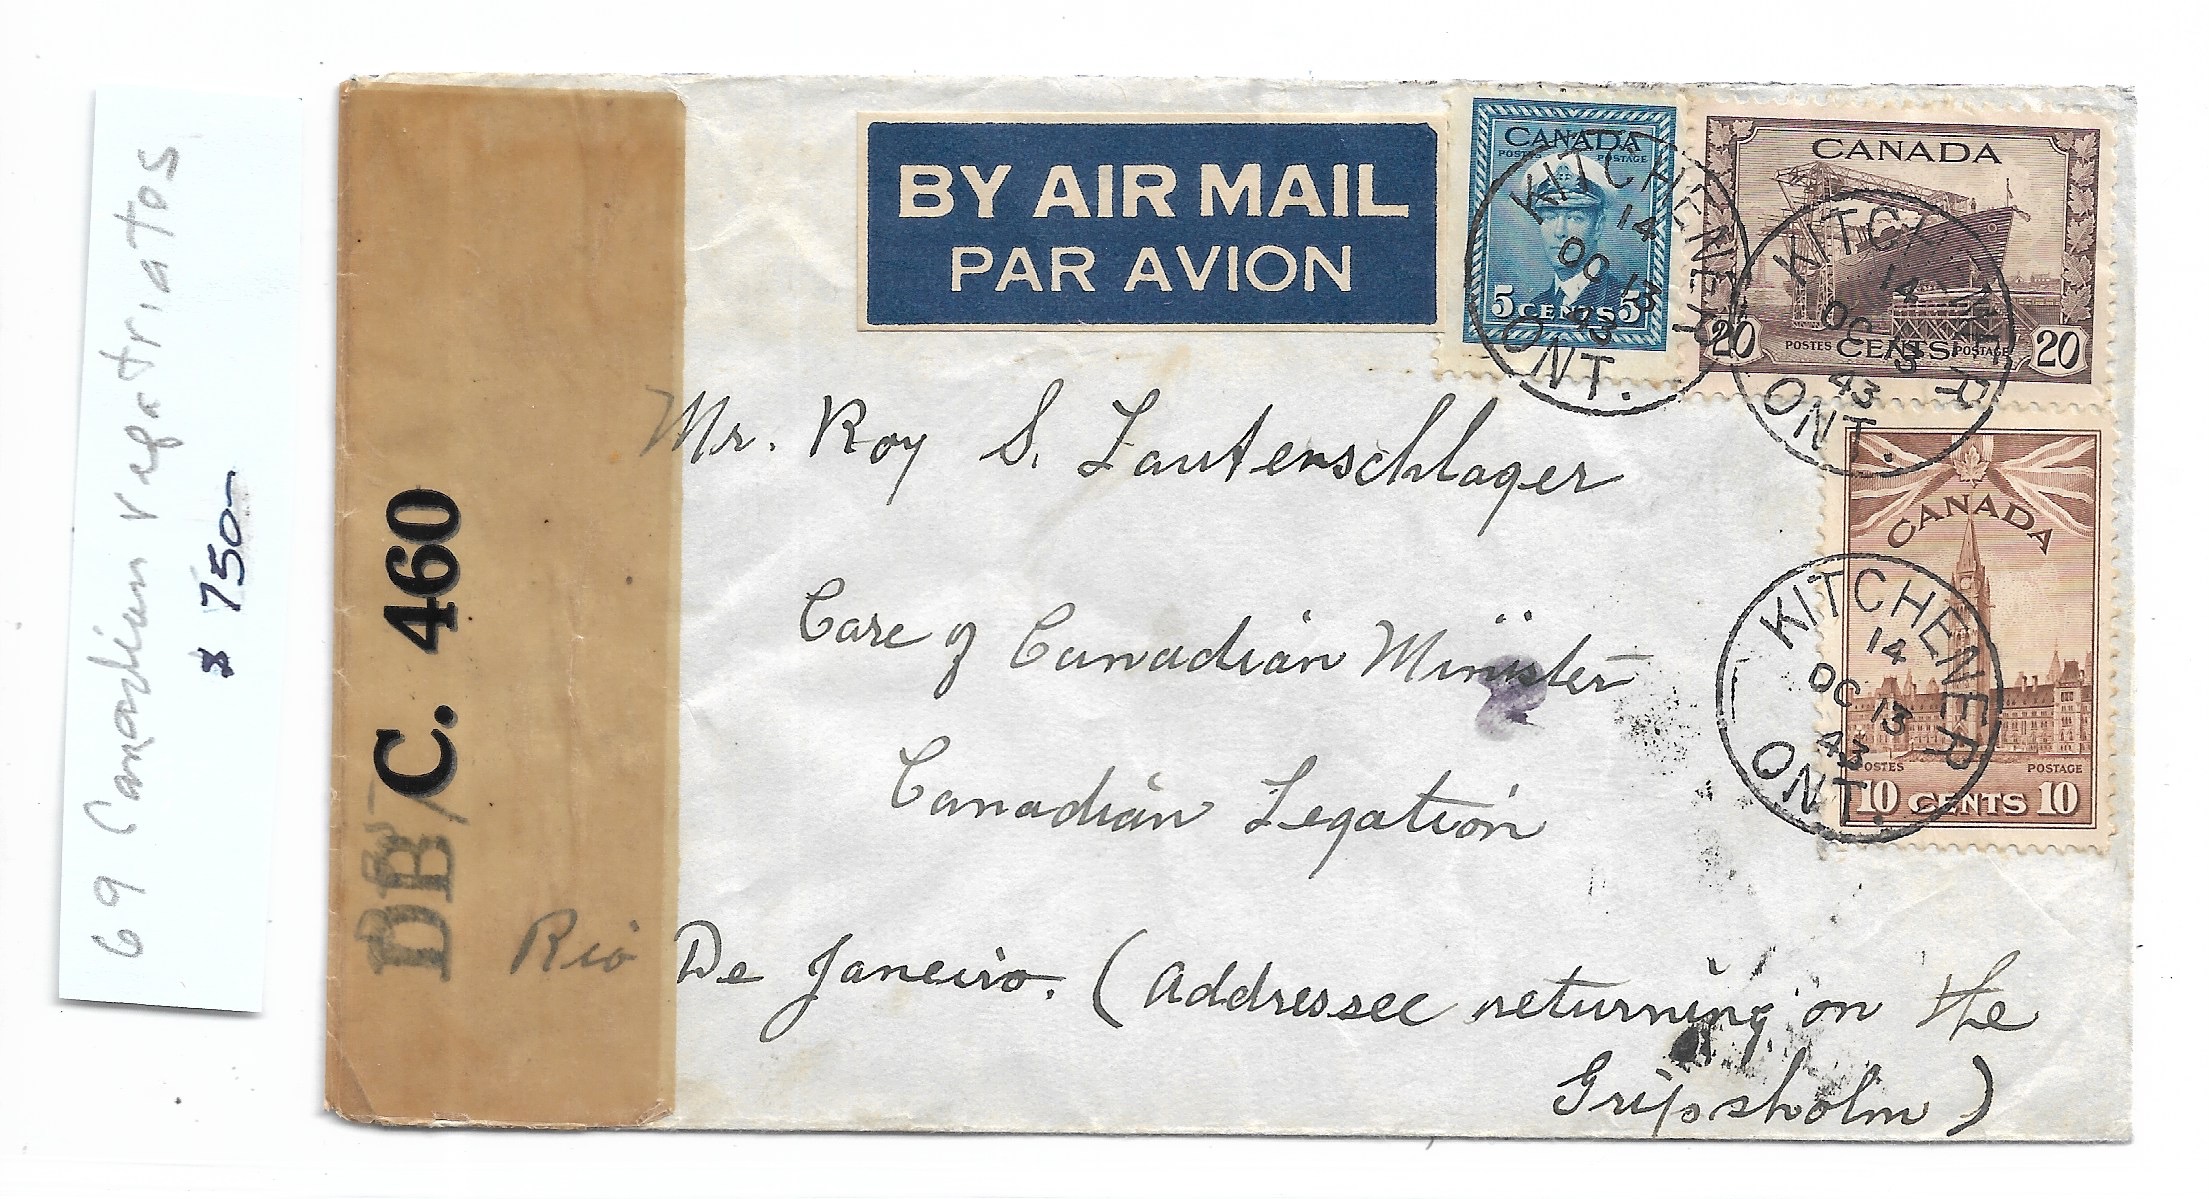 69 Canadian repatriatos
$ 750-
DB/C. 460
BY AIR MAIL
PAR AVION
CANADA
POSTES POSTAGE
5 CENTS 5
KITCHENER
14
OC 13
43
ONT.
CANADA
20 POSTES CENTS POSTAGE 20
KITCHENER
14
OC 13
43
ONT.
CANADA
POSTES POSTAGE
10 CENTS 10
KITCHENER
14
OC 13
43
ONT.
Mr. Roy S. Lautenschlager
Care of Canadian Minister
Canadian Legation
Rio De Janeiro. (Addressee returning on the
Gripsholm)